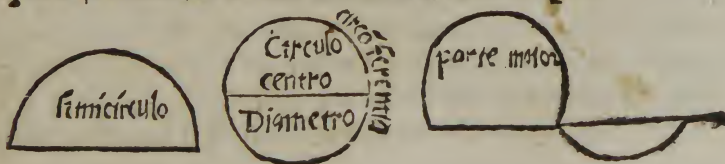 semicirculo
Circulo
centro
Diametro
circōferemtia
parte maior